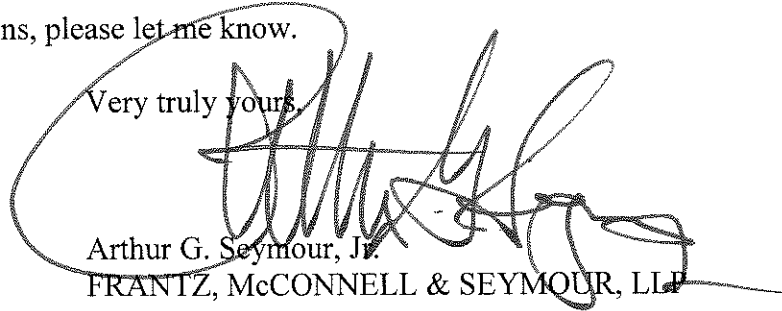 ns, please let me know.
Very truly yours,
Arthur G. Seymour, Jr.
FRANTZ, McCONNELL & SEYMOUR, LLP